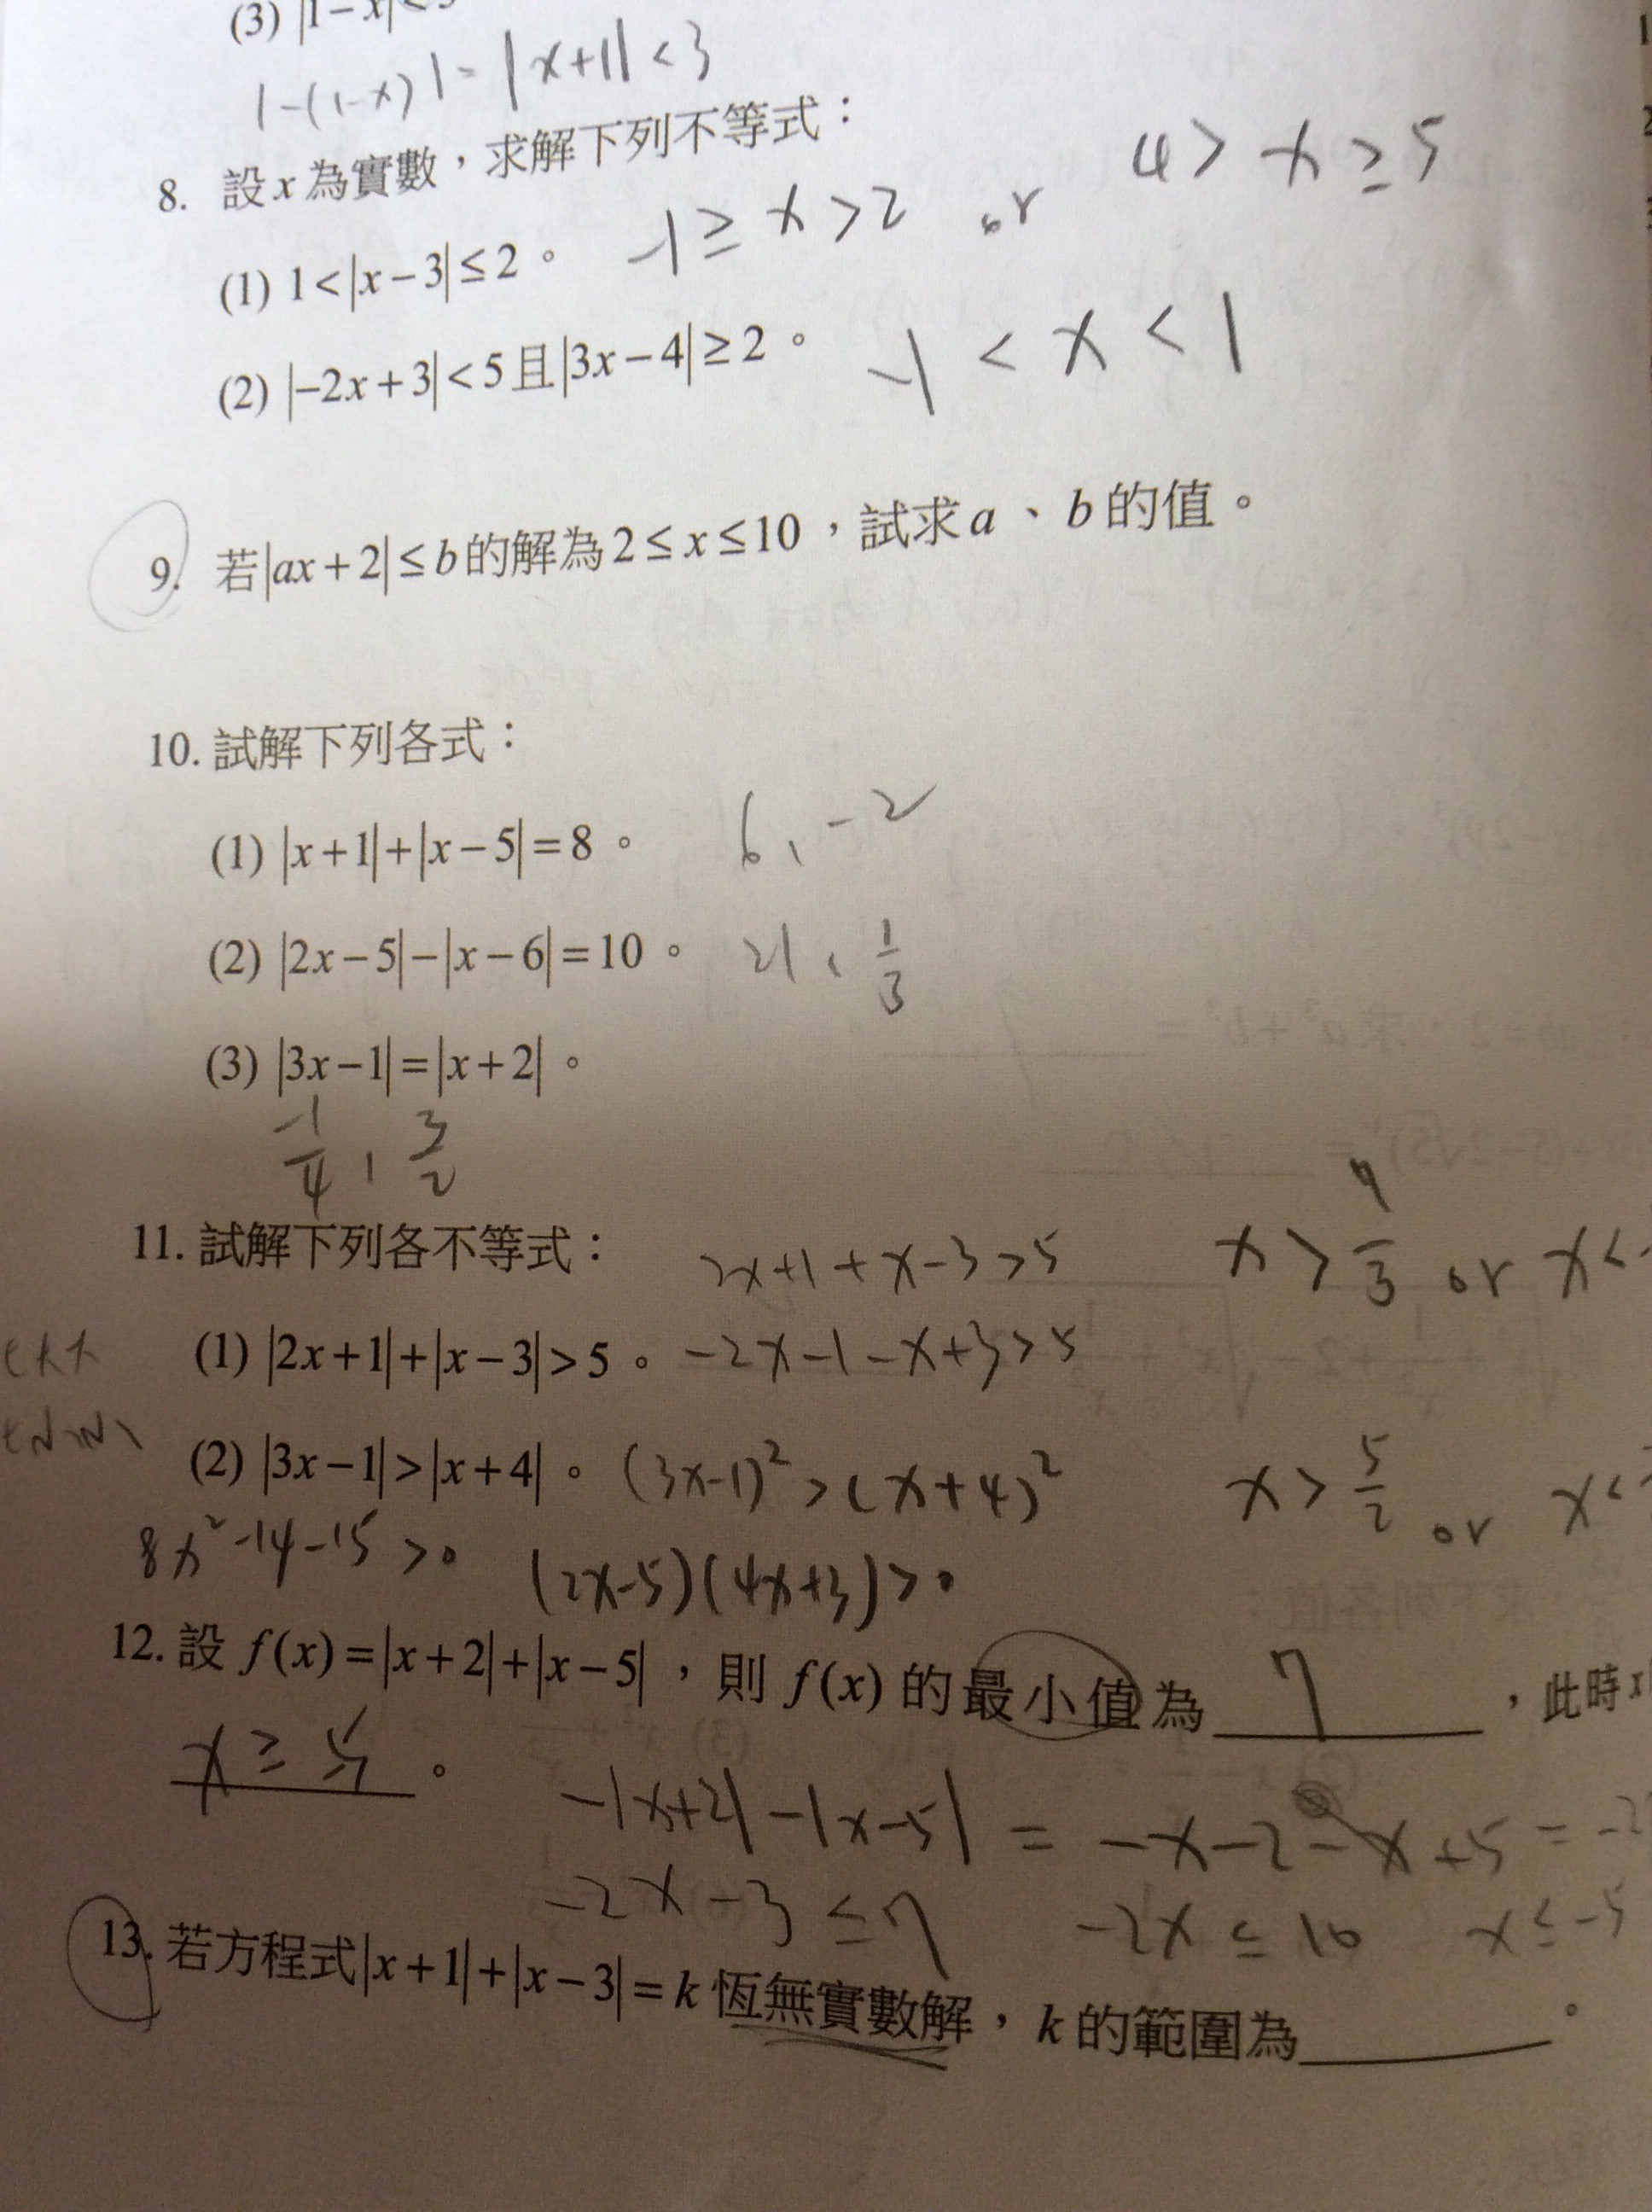 (3) |1-x|<
|-(1-x)|=|x+1|<3
8. 設x為實數，求解下列不等式：
(1) 1<|x-3|≤2。 -1≥x>2 or 4>x≥5
(2) |-2x+3|<5且|3x-4|≥2。 -1<x<1
9. 若|ax+2|≤b的解為2≤x≤10，試求a、b的值。
10. 試解下列各式：
(1) |x+1|+|x-5|=8。 6, -2
(2) |2x-5|-|x-6|=10。 21, 1/3
(3) |3x-1|=|x+2|。
-1/4, 3/2
11. 試解下列各不等式： 2x+1+x-3>5 x>7/3 or x<-
(1) |2x+1|+|x-3|>5。 -2x-1-x+3>5
(2) |3x-1|>|x+4|。 (3x-1)²>(x+4)² x>5/2 or x<
8x²-14-15>0 (2x-5)(4x+3)>0
12. 設 f(x)=|x+2|+|x-5|，則 f(x) 的最小值為 7 ，此時x
x≥5。
-|x+2|-|x-5|=-x-2-x+5=-2
-2x-3≤7 -2x≤10 x≤-5
13. 若方程式|x+1|+|x-3|=k恆無實數解，k的範圍為______。